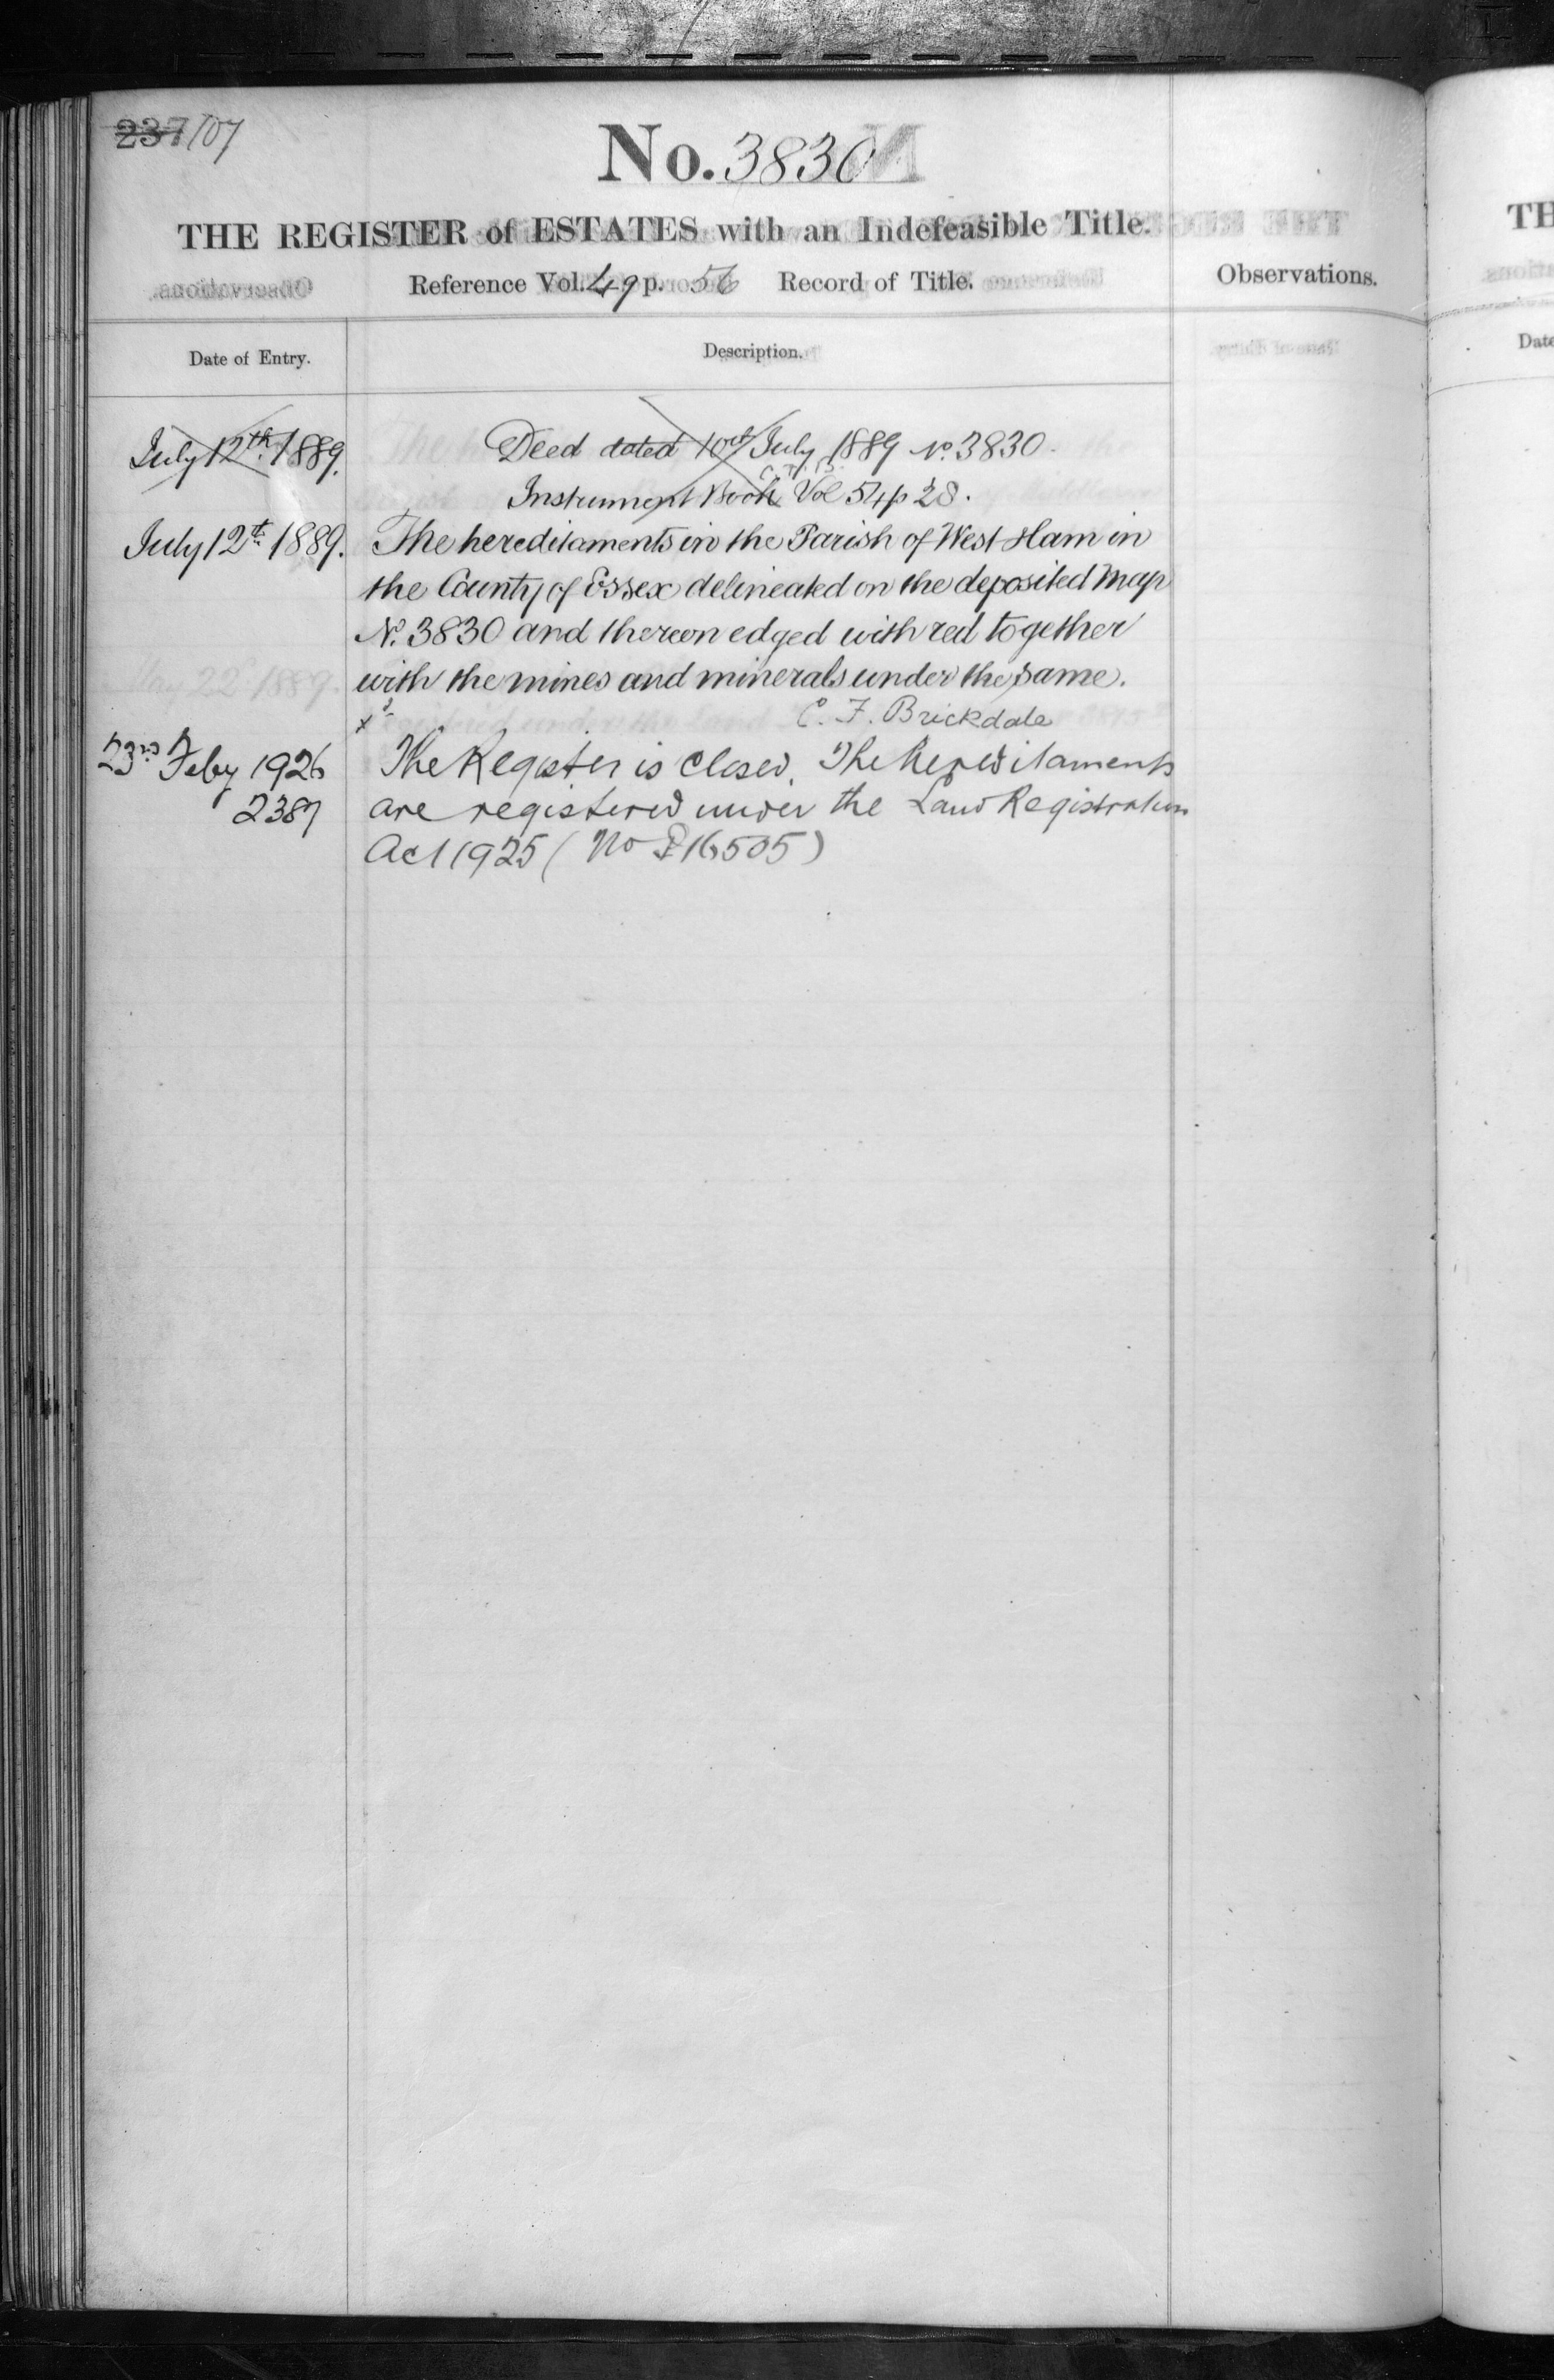 237/107
No. 3830
THE REGISTER of ESTATES with an Indefeasible Title.
Reference Vol. 49 p. 56 Record of Title.
Observations.
Date of Entry.
Description.
July 12th 1889.
Deed dated 10th July 1889 No. 3830.
Instrument Book Vol 54 p 28.
July 12th 1889.
The hereditaments in the Parish of West Ham in
the County of Essex delineated on the deposited Map
No. 3830 and thereon edged with red together
with the mines and minerals under the same.
C. F. Brickdale
23rd Feby 1926
2387
The Register is closed. The hereditaments
are registered under the Land Registration
Act 1925 (No P16505)
TH
Date